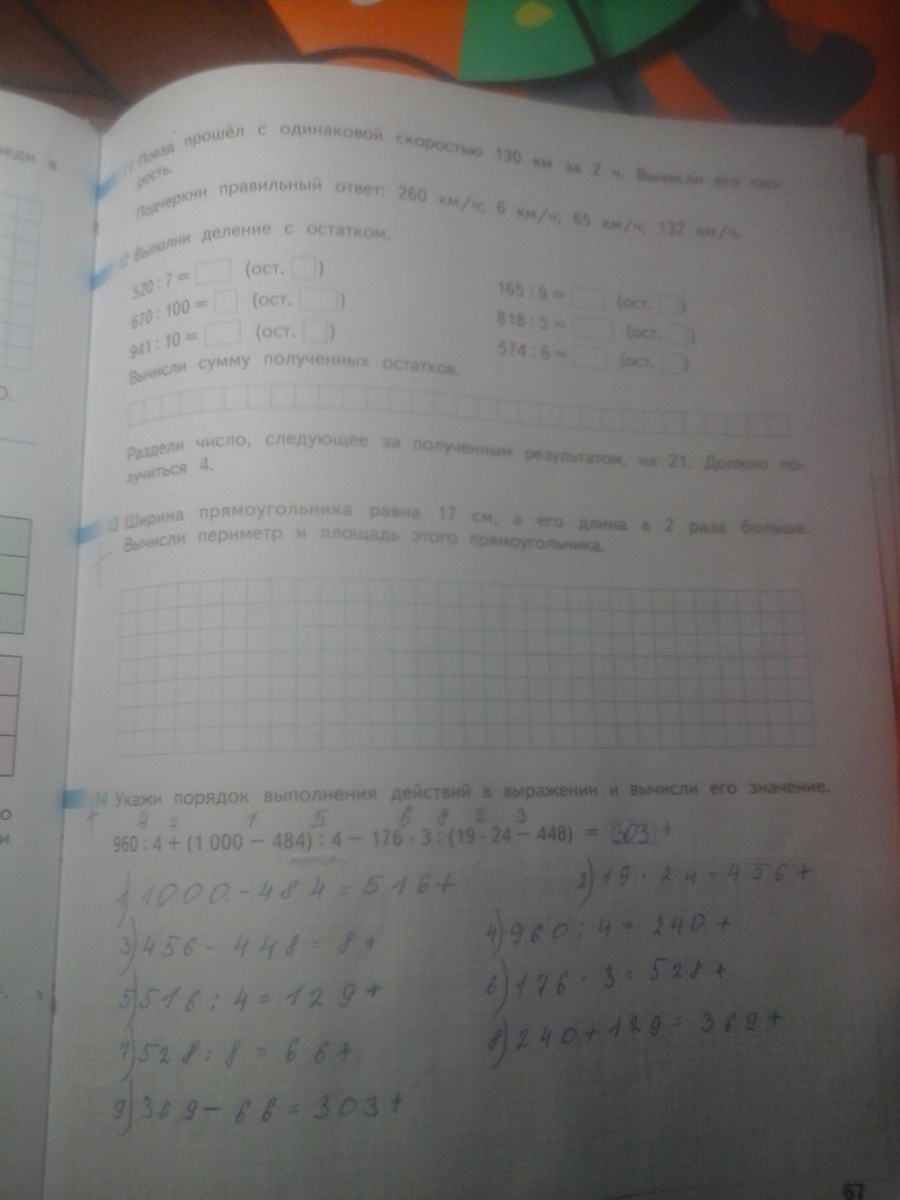 веди в
О.
о
и
11 Поезд прошёл с одинаковой скоростью 130 км за 2 ч. Вычисли его ско-
рость.
Подчеркни правильный ответ: 260 км/ч; 6 км/ч; 65 км/ч; 132 км/ч.
12 Выполни деление с остатком.
520 : 7 = (ост. )
165 : 9 = (ост. )
670 : 100 = (ост. )
818 : 5 = (ост. )
941 : 10 = (ост. )
574 : 6 = (ост. )
Вычисли сумму полученных остатков.
Раздели число, следующее за полученным результатом, на 21. Должно по-
лучиться 4.
13 Ширина прямоугольника равна 17 см, а его длина в 2 раза больше.
Вычисли периметр и площадь этого прямоугольника.
14 Укажи порядок выполнения действий в выражении и вычисли его значение.
4 1 5 6 2 3
960 : 4 + (1 000 − 484) : 4 − 176 · 3 : (19 · 24 − 448) = 303 +
1) 1000 - 484 = 516 +
2) 19 · 24 = 456 +
3) 456 - 448 = 8 +
4) 960 : 4 = 240 +
5) 516 : 4 = 129 +
6) 176 · 3 = 528 +
7) 528 : 8 = 66 +
8) 240 + 129 = 369 +
9) 369 - 66 = 303 +
67